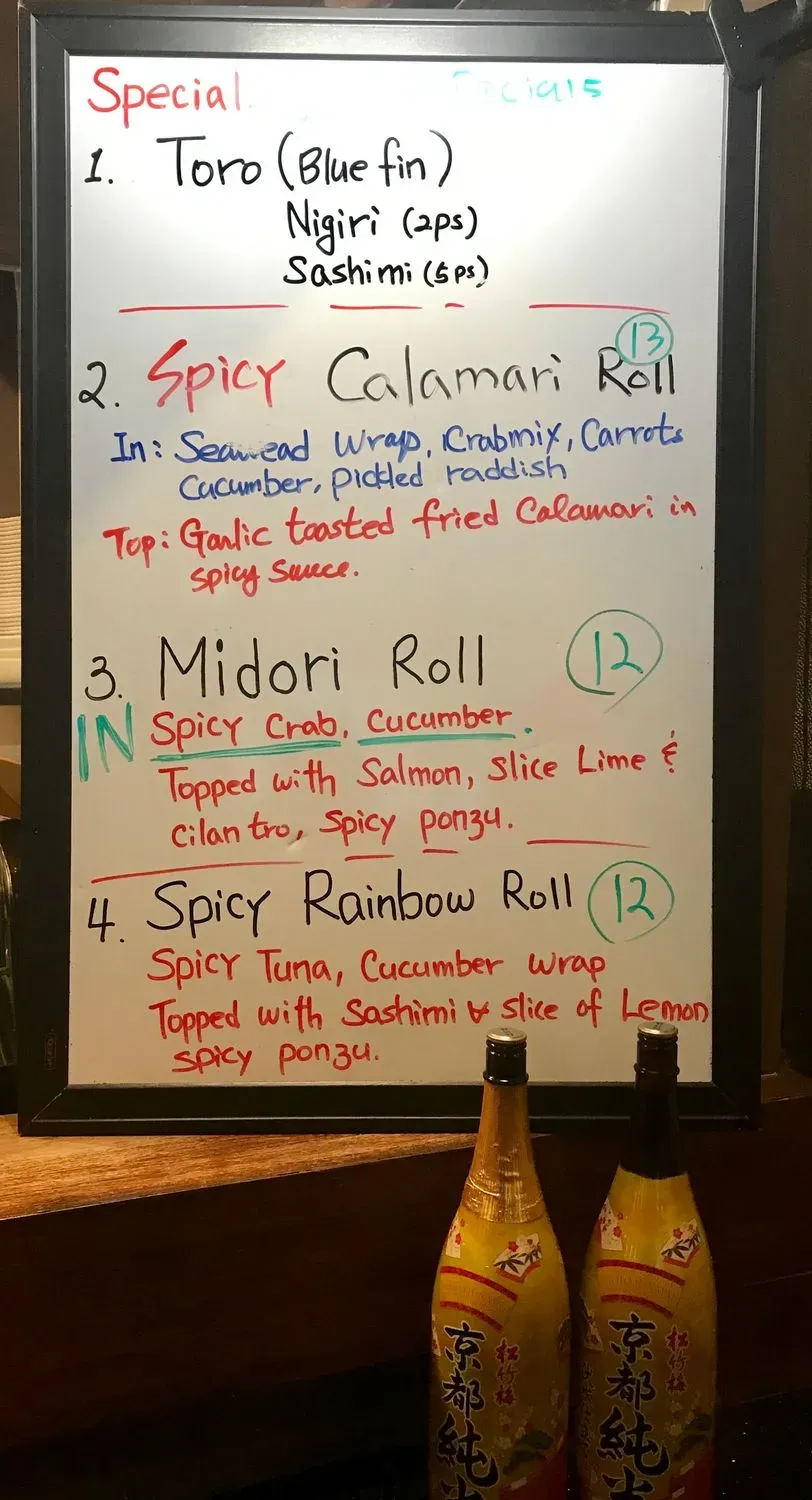 Special
1. Toro (Blue fin)
Nigiri (2ps)
Sashimi (5ps)
2. Spicy Calamari Roll 13
In: Seawead Wrap, Crabmix, Carrots
Cucumber, pickled raddish
Top: Garlic toasted fried Calamari in
spicy Sauce.
3. Midori Roll 12
IN Spicy Crab, Cucumber.
Topped with Salmon, Slice Lime &
cilantro, spicy ponzu.
4. Spicy Rainbow Roll 12
Spicy Tuna, Cucumber wrap
Topped with Sashimi & slice of Lemon
spicy ponzu.
松竹梅
京都純米
松竹梅
京都純米